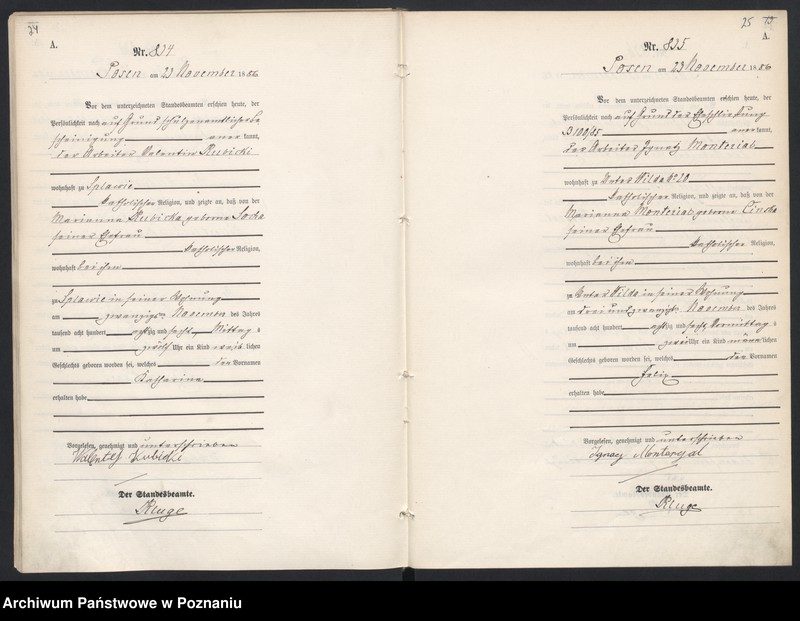 24
A.
Nr. 824
Posen am 23 November 1886
Vor dem unterzeichneten Standesbeamten erschien heute, der
Persönlichkeit nach auf Grund
scheinigung anerkannt,
der Arbeiter Valentin Kubicki
wohnhaft zu Splawie
katholischer Religion, und zeigte an, daß von der
Marianna Kubicka geborne Soska
seiner Ehefrau
katholischer Religion,
wohnhaft bei ihm
zu Splawie in seiner Wohnung
am zwanzigsten November des Jahres
tausend acht hundert achtzig und sechs Mittag s
um zwölf Uhr ein Kind weiblichen
Geschlechts geboren worden sei, welches den Vornamen
Katharina
erhalten habe
Vorgelesen, genehmigt und unterschrieben
Kubicki
Der Standesbeamte.
Kluge
25
A.
Nr. 825
Posen am 23 November 1886
Vor dem unterzeichneten Standesbeamten erschien heute, der
Persönlichkeit nach auf Grund der Eheschließung
B 100/85 anerkannt,
der Arbeiter Ignatz Monterial
wohnhaft zu Unter Wilda No 20
katholischer Religion, und zeigte an, daß von der
Marianna Monterial geborne
seiner Ehefrau
katholischer Religion,
wohnhaft bei ihm
zu Unter Wilda in seiner Wohnung
am dreiundzwanzigsten November des Jahres
tausend acht hundert achtzig und sechs Vormittag s
um zwei Uhr ein Kind männlichen
Geschlechts geboren worden sei, welches den Vornamen
Felix
erhalten habe
Vorgelesen, genehmigt und unterschrieben
Ignacy Monteryal
Der Standesbeamte.
Kluge
Archiwum Państwowe w Poznaniu